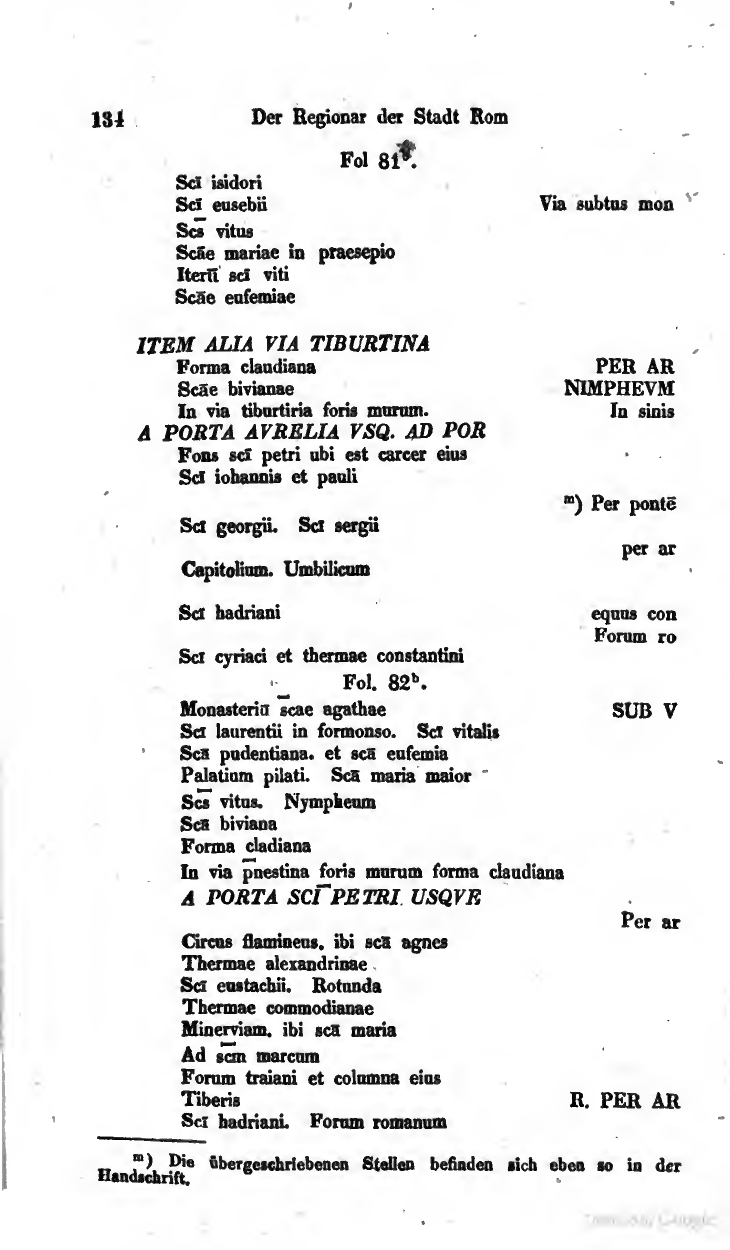 134 Der Regionar der Stadt Rom
Fol 81ᵇ.
Scī isidori
Scī eusebii Via subtus mon
Scs̄ vitus
Scāe mariae in praesepio
Iterū scī viti
Scāe eufemiae
ITEM ALIA VIA TIBURTINA
Forma claudiana PER AR
Scāe bivianae NIMPHEVM
In via tiburtiria foris murum. In sinis
A PORTA AVRELIA VSQ. AD POR
Fons scī petri ubi est carcer eius
Scī iohannis et pauli
ᵐ) Per pontē
Scī georgii. Scī sergii
per ar
Capitolium. Umbilicum
Scī hadriani equus con
Forum ro
Scī cyriaci et thermae constantini
Fol. 82ᵇ.
Monasteriū s̄cae agathae SUB V
Scī laurentii in formonso. Scī vitalis
Scā pudentiana. et scā eufemia
Palatium pilati. Scā maria maior
Scs̄ vitus. Nympheum
Scā biviana
Forma cladiana
In via p̄nestina foris murum forma claudiana
A PORTA SCI̅ PETRI USQVE
Per ar
Circus flamineus. ibi scā agnes
Thermae alexandrinae
Scī eustachii. Rotunda
Thermae commodianae
Minerviam. ibi scā maria
Ad sc̄m marcum
Forum traiani et columna eius
Tiberis R. PER AR
Scī hadriani. Forum romanum
ᵐ) Die übergeschriebenen Stellen befinden sich eben so in der
Handschrift.